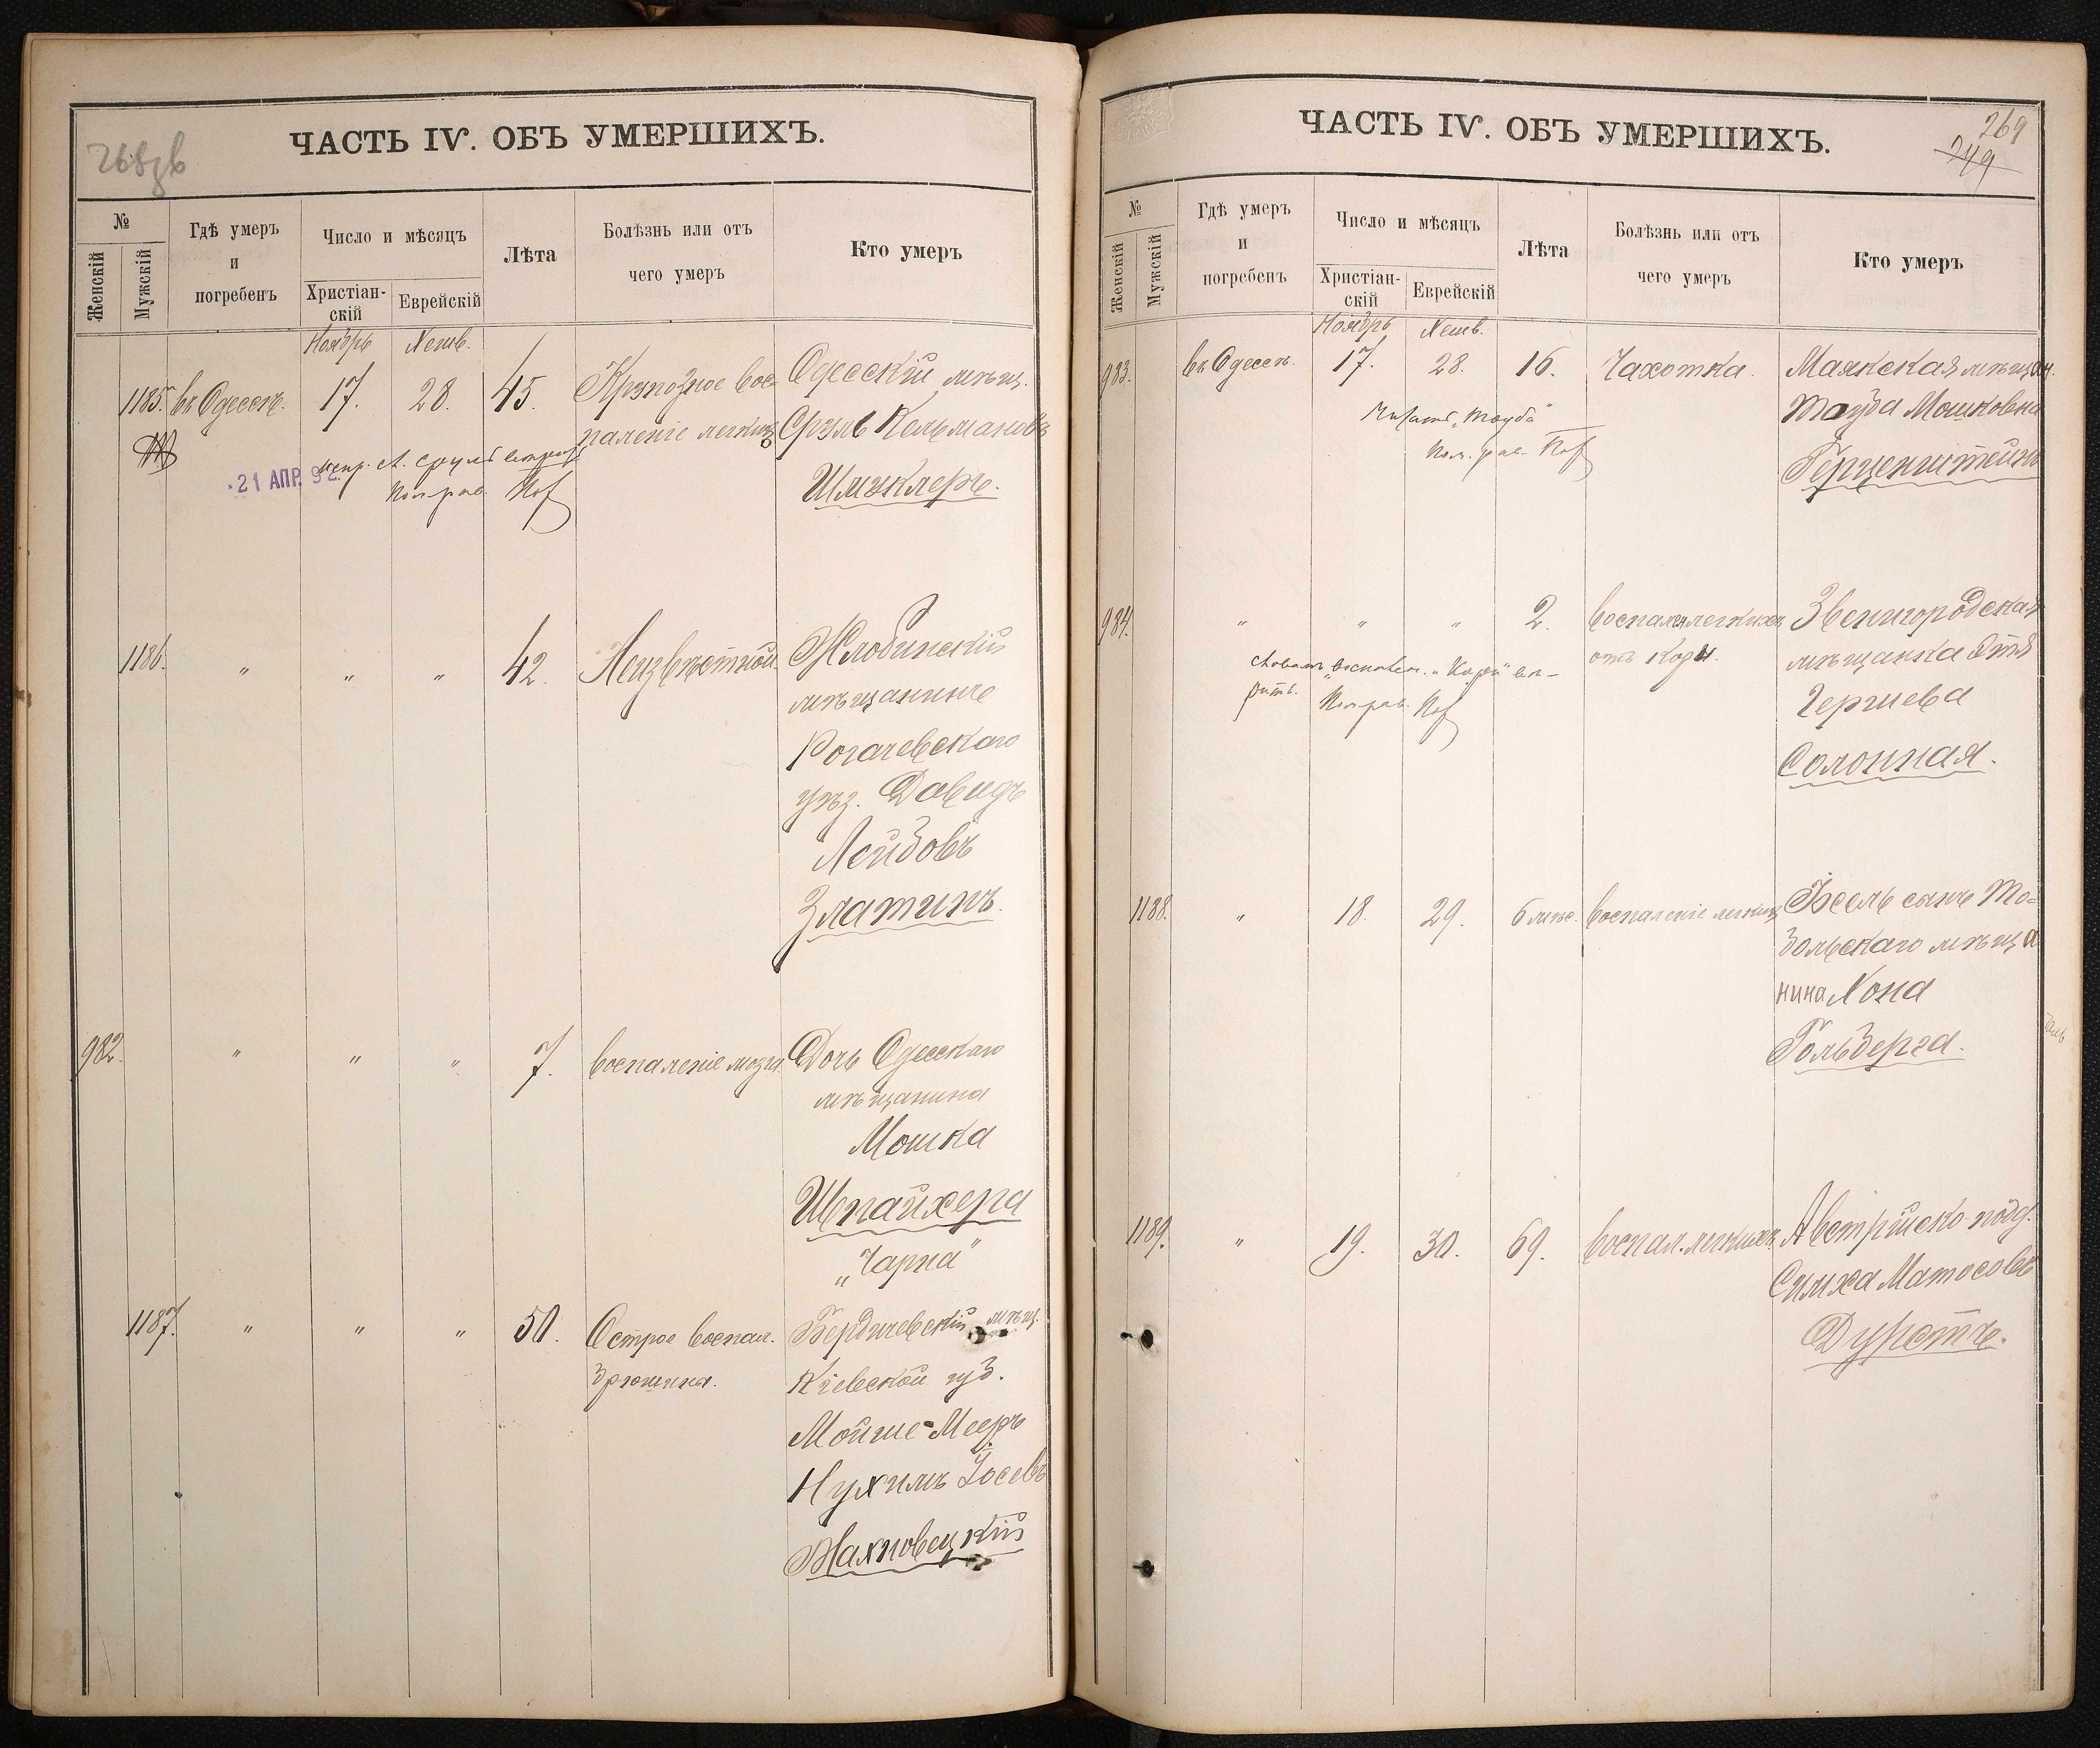 268зв
ЧАСТЬ IV. ОБЪ УМЕРШИХЪ.
№
Женскій
Мужскій
Гдѣ умеръ
и
погребенъ
Число и мѣсяцъ
Христіан-
скій
Еврейскій
Лѣта
Болѣзнь или отъ
чего умеръ
Кто умеръ
Ноябрь Хешв.
1185. въ Одессѣ. 17. 28. 45. Крупозное вос-
паленіе легкихъ
Одесскій мѣщ.
Сруль Кельмановъ
Шмуклеръ.
21 АПР. 92
Поправ.
1186. " " " 42. Неизвѣстной
Жлобинскій
мѣщанинъ
Рогачевскаго
уѣз. Давидъ
Лейбовъ
Златинъ.
982. " " " 7. воспаленіе мозга.
Дочь Одесскаго
мѣщанина
Мошка
Шпайхера
„Чарна"
1187. " " " 50. Острое воспал.
брюшины.
Бердичевскій мѣщ.
Кіевской губ.
Мойше-Мееръ
Нухимъ Іосевъ
Жахновецкій
269
249
ЧАСТЬ IV. ОБЪ УМЕРШИХЪ.
№
Женскій
Мужскій
Гдѣ умеръ
и
погребенъ
Число и мѣсяцъ
Христіан-
скій
Еврейскій
Лѣта
Болѣзнь или отъ
чего умеръ
Кто умеръ
Ноябрь Хешв.
983. въ Одессѣ. 17. 28. 16. Чахотка.
Маякская мѣщан.
Тауба Мошковна
Герценштейнъ
Читать „Тауба"
Поп. рав.
984. " " " 2. воспал. легкихъ
отъ кори.
Звенигородская
мѣщанка Этя
Гершева
Солонная.
Поправ.
1188. " 18. 29. 6 мѣс. воспаленіе легкихъ
Іосель сынъ То-
больскаго мѣща
нина Хона
Гольберга.
1189. " 19. 30. 69. воспал. легкихъ.
Австрійско-подд.
Симха Матосовъ
Дурстъ.